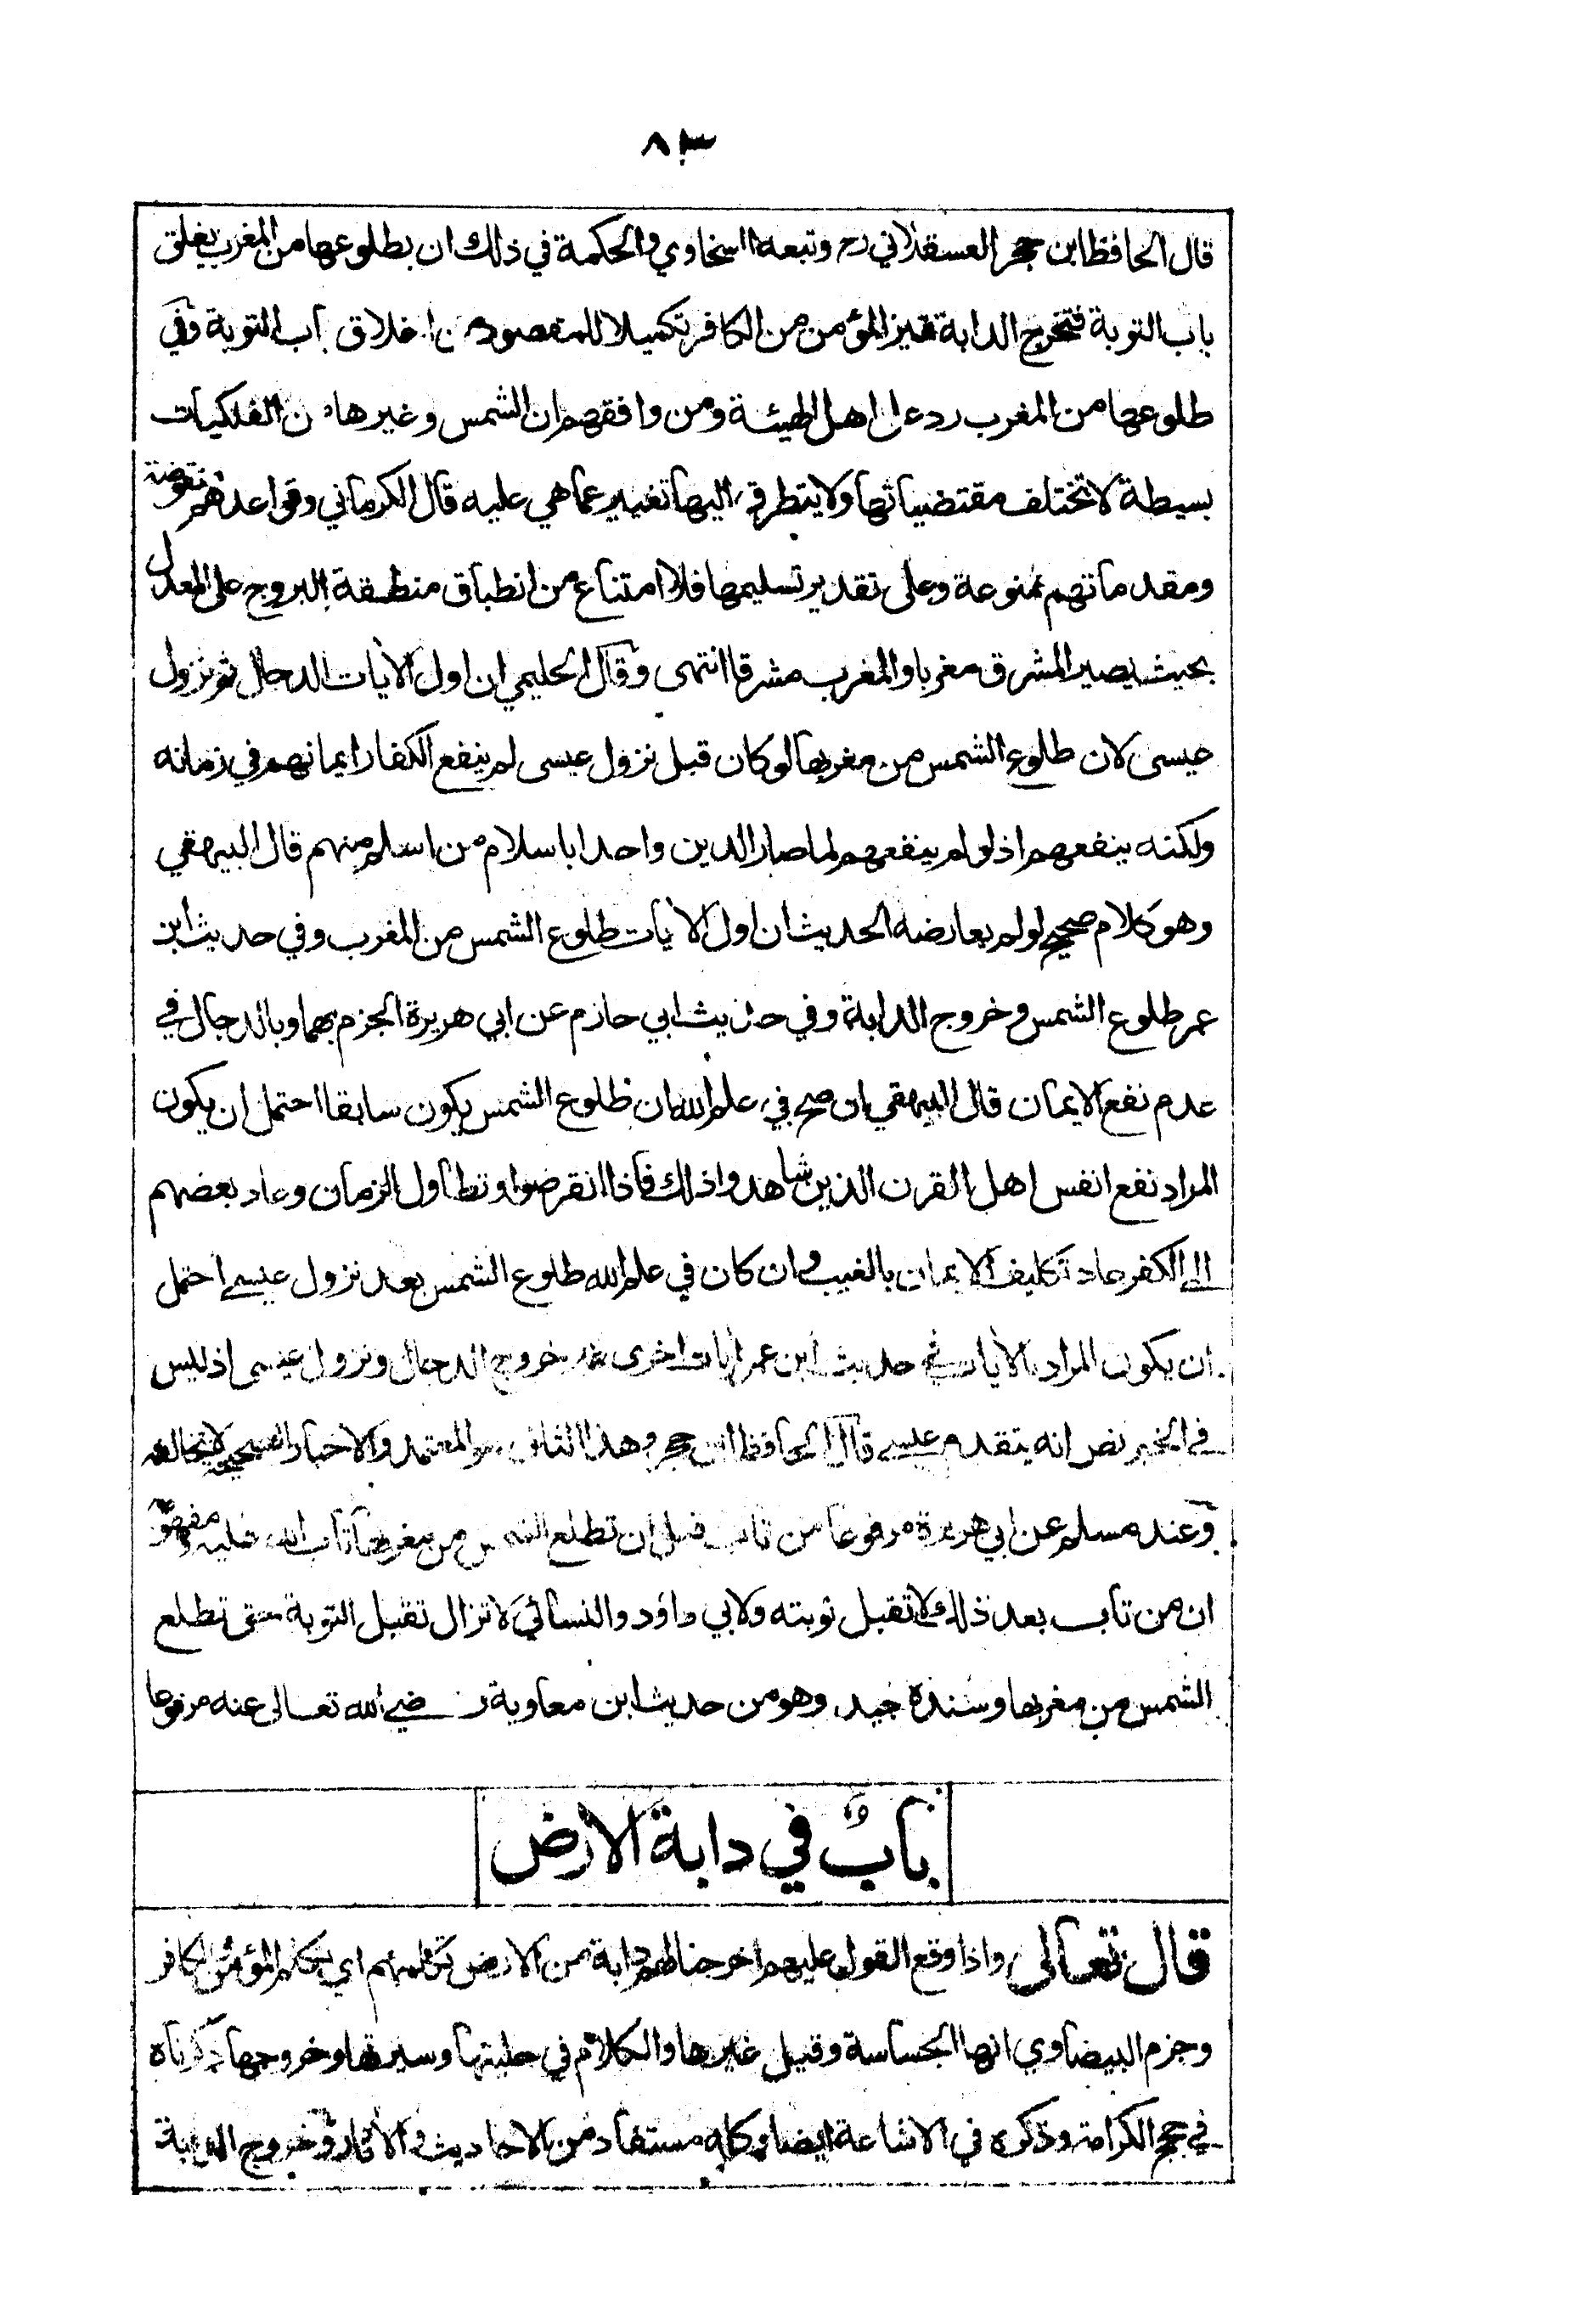 ٨٣
قال الحافظ ابن حجر العسقلاني رح وتبعه السخاوي والحكمة في ذلك ان بطلوعها من المغرب يغلق
باب التوبة فتخرج الدابة تميز المؤمن من الكافر تكميلا للمقصود من اغلاق باب التوبة وفي
طلوعها من المغرب رد على اهل الهيئة ومن وافقهم ان الشمس وغيرها من الفلكيات
بسيطة لا تختلف مقتضياتها ولا يتطرق اليها تغيير عما هي عليه قال الكرماني وقواعدهم منقوضة
ومقدماتهم ممنوعة وعلى تقدير تسليمها فلا امتناع من انطباق منطقة البروج على المعدل
بحيث يصير المشرق مغربا والمغرب مشرقا انتهى وقال الحليمي ان اول الآيات الدجال ثم نزول
عيسى لان طلوع الشمس من مغربها لو كان قبل نزول عيسى لم ينفع الكفار ايمانهم في زمانه
ولكنه ينفعهم اذ لو لم ينفعهم لما صار الدين واحدا باسلام من اسلم منهم قال البيهقي
وهو كلام صحيح لو لم يعارضه الحديث ان اول الآيات طلوع الشمس من المغرب وفي حديث ابن
عمر طلوع الشمس وخروج الدابة وفي حديث ابي حازم عن ابي هريرة الجزم بهما وبالدجال في
عدم نفع الايمان قال البيهقي ان صح في علم الله ان طلوع الشمس يكون سابقا احتمل ان يكون
المراد نفع انفس اهل القرن الذين شاهدوا ذلك فاذا انقرضوا وتطاول الزمان وعاد بعضهم
الى الكفر عاد تكليف الايمان بالغيب وان كان في علم الله طلوع الشمس بعد نزول عيسى احتمل
ان يكون المراد بالآيات في حديث ابن عمر آيات اخرى غير خروج الدجال ونزول عيسى اذ ليس
في الخبر نص انه يتقدم عيسى قال الحافظ ابن حجر وهذا الثاني هو المعتمد والاخبار الصحيحة لا تخالفه
وعند مسلم عن ابي هريرة مرفوعا من تاب قبل ان تطلع الشمس من مغربها تاب الله عليه ومفهومه
ان من تاب بعد ذلك لا تقبل توبته ولابي داؤد والنسائي لا تزال تقبل التوبة حتى تطلع
الشمس من مغربها وسنده جيد وهو من حديث ابن معاوية رضي الله تعالى عنه مرفوعا
باب في دابة الارض
قال تعالى واذا وقع القول عليهم اخرجنا لهم دابة من الارض تكلمهم اي تكلم المؤمن الكافر
وجزم البيضاوي انها الجساسة وقيل غيرها والكلام في حليتها وسيرتها وخروجها ذكرناه
في حجج الكرامة وذكره في الاشاعة ايضا وكله مستفاد من الاحاديث والآثار وخروج الدابة